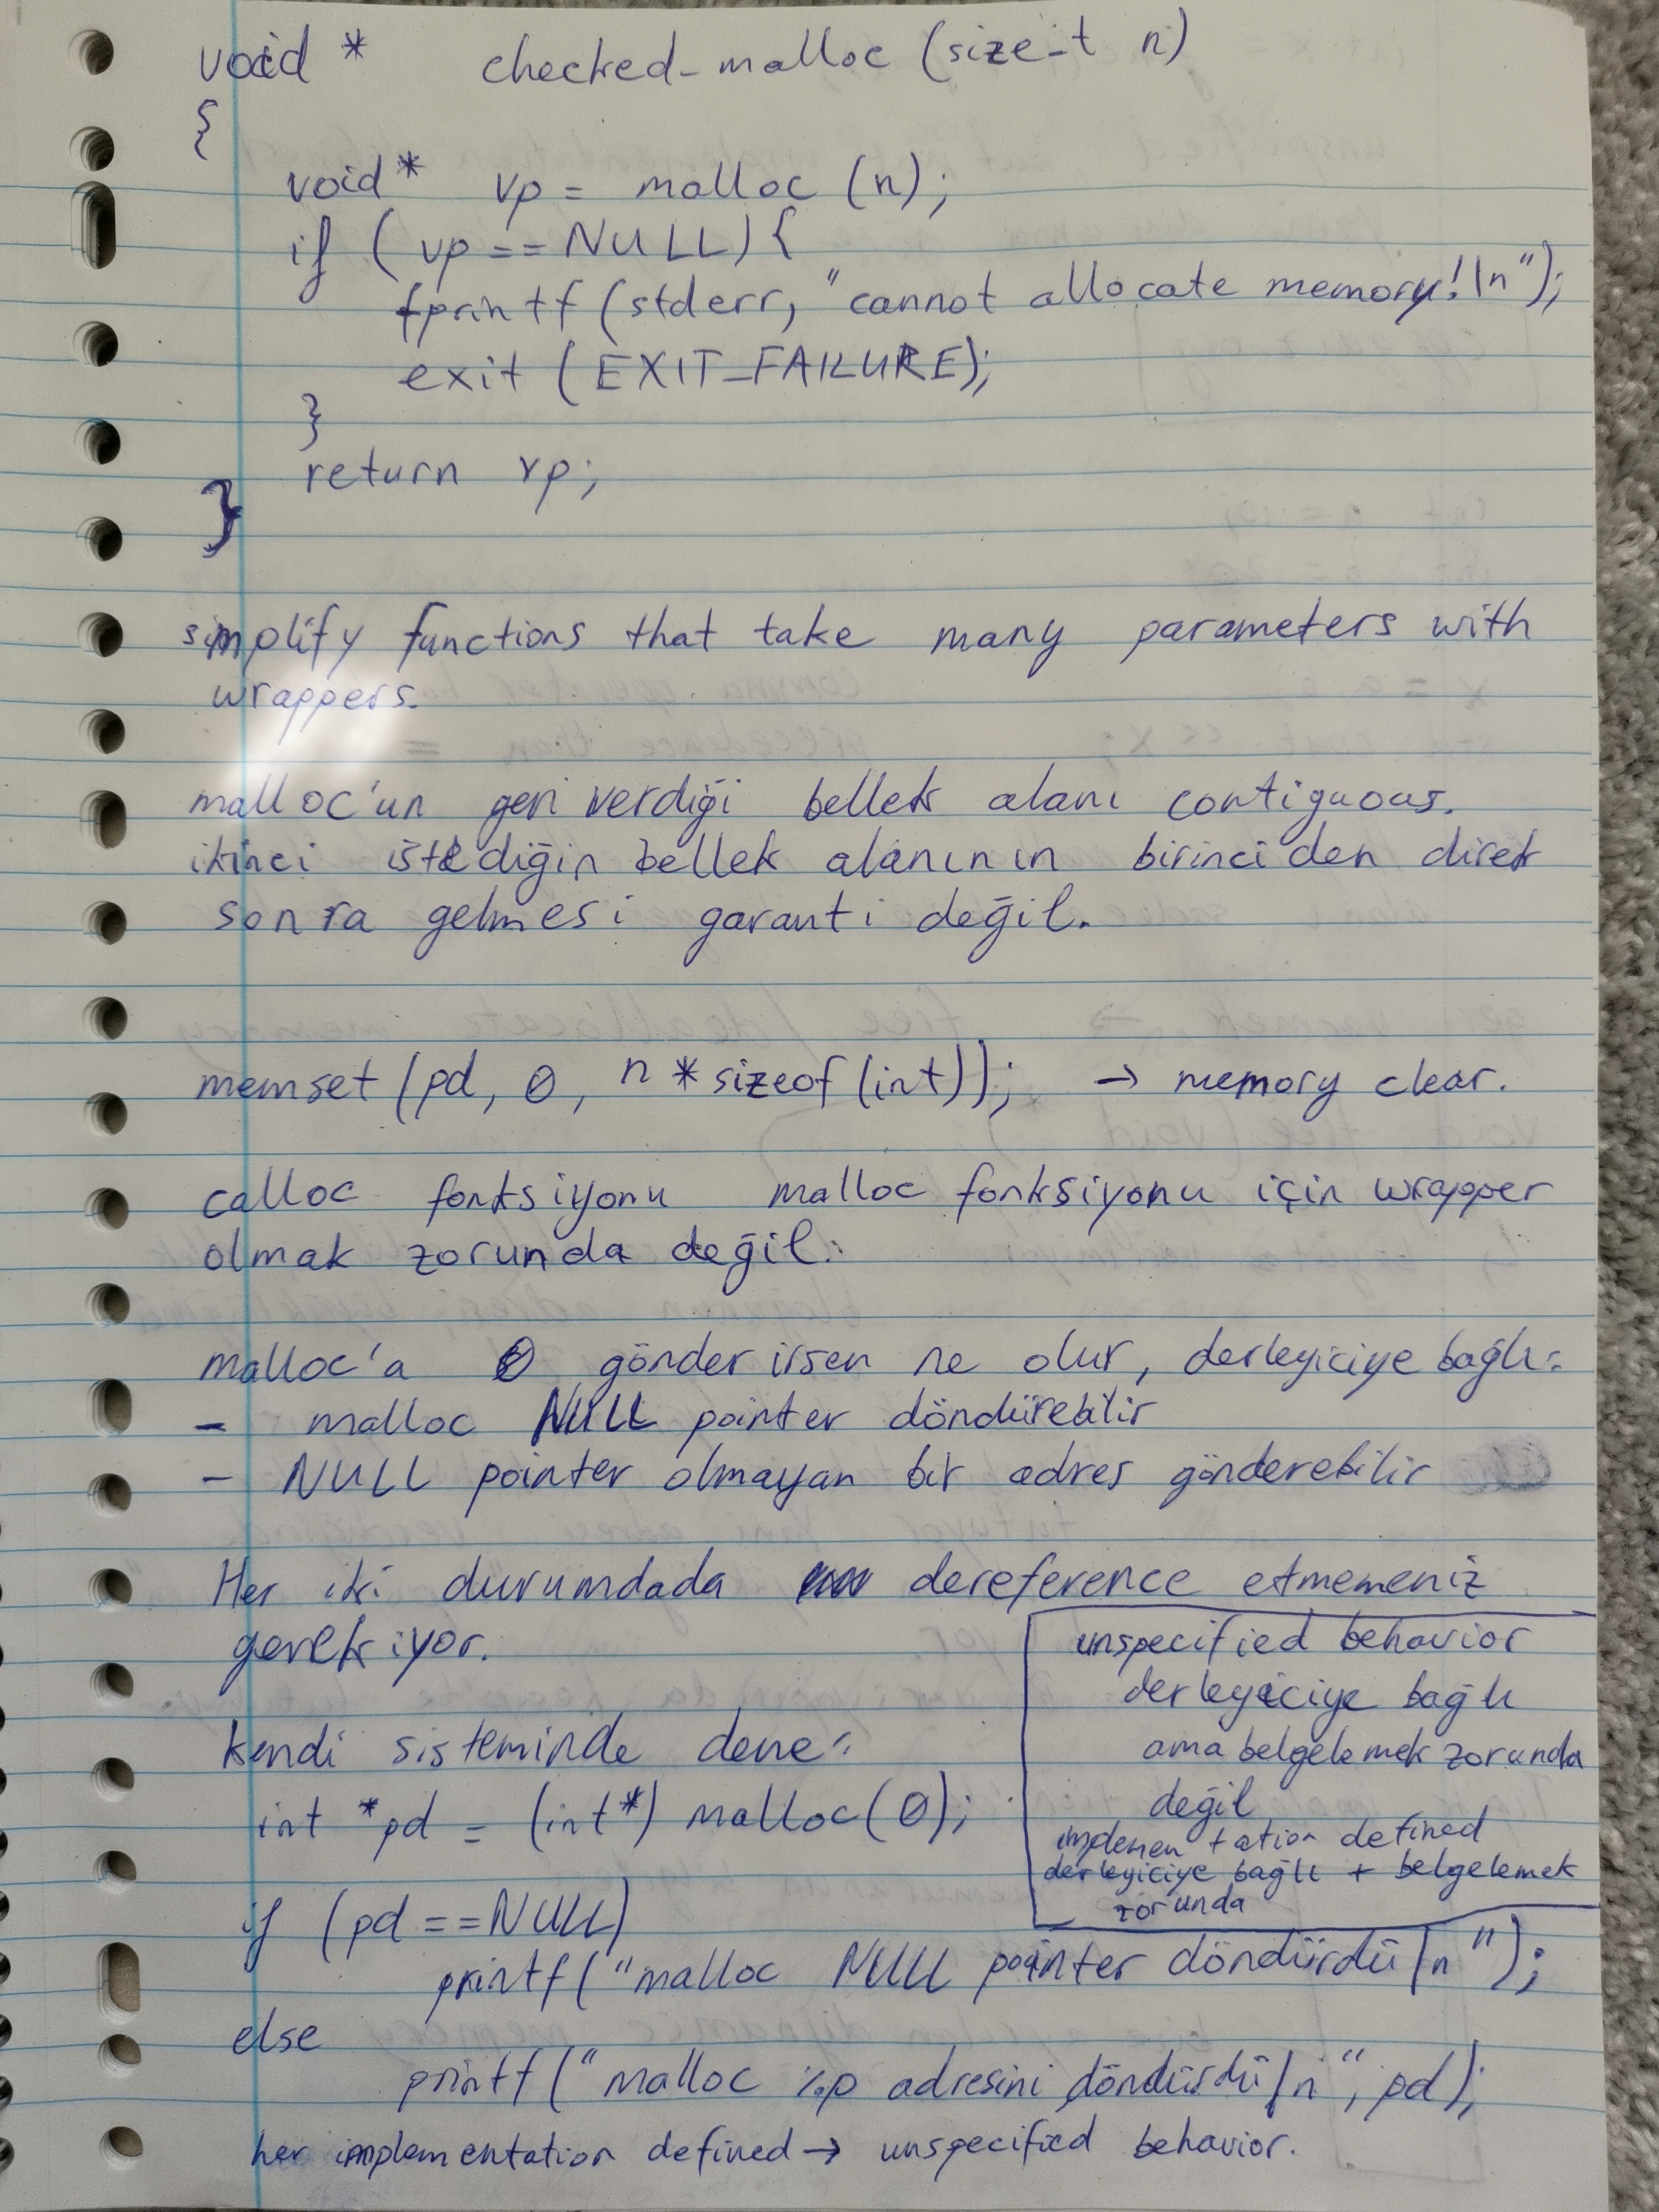 void * checked_malloc (size_t n)
{
void* vp = malloc (n);
if ( vp == NULL) {
fprintf (stderr, "cannot allocate memory! \n");
exit ( EXIT_FAILURE);
}
return vp;
}
simplify functions that take many parameters with
wrappers.
malloc'un geri verdiği bellek alanı contiguous.
ikinci istediğin bellek alanının birinciden direk
sonra gelmesi garanti değil.
memset (pd, 0, n * sizeof (int)); → memory clear.
calloc fonksiyonu malloc fonksiyonu için wrapper
olmak zorunda değil.
malloc'a 0 gönderirsen ne olur, derleyiciye bağlı:
- malloc NULL pointer döndürebilir
- NULL pointer olmayan bir adres gönderebilir
Her iki durumdada dereference etmemeniz
gerekiyor.
unspecified behavior
derleyiciye bağlı
ama belgelemek zorunda
değil
implementation defined
derleyiciye bağlı + belgelemek
zorunda
kendi sisteminde dene:
int *pd = (int*) malloc (0);
if (pd == NULL)
printf ("malloc NULL pointer döndürdü \n");
else
printf ("malloc %p adresini döndürdü \n", pd);
her implementation defined → unspecified behavior.